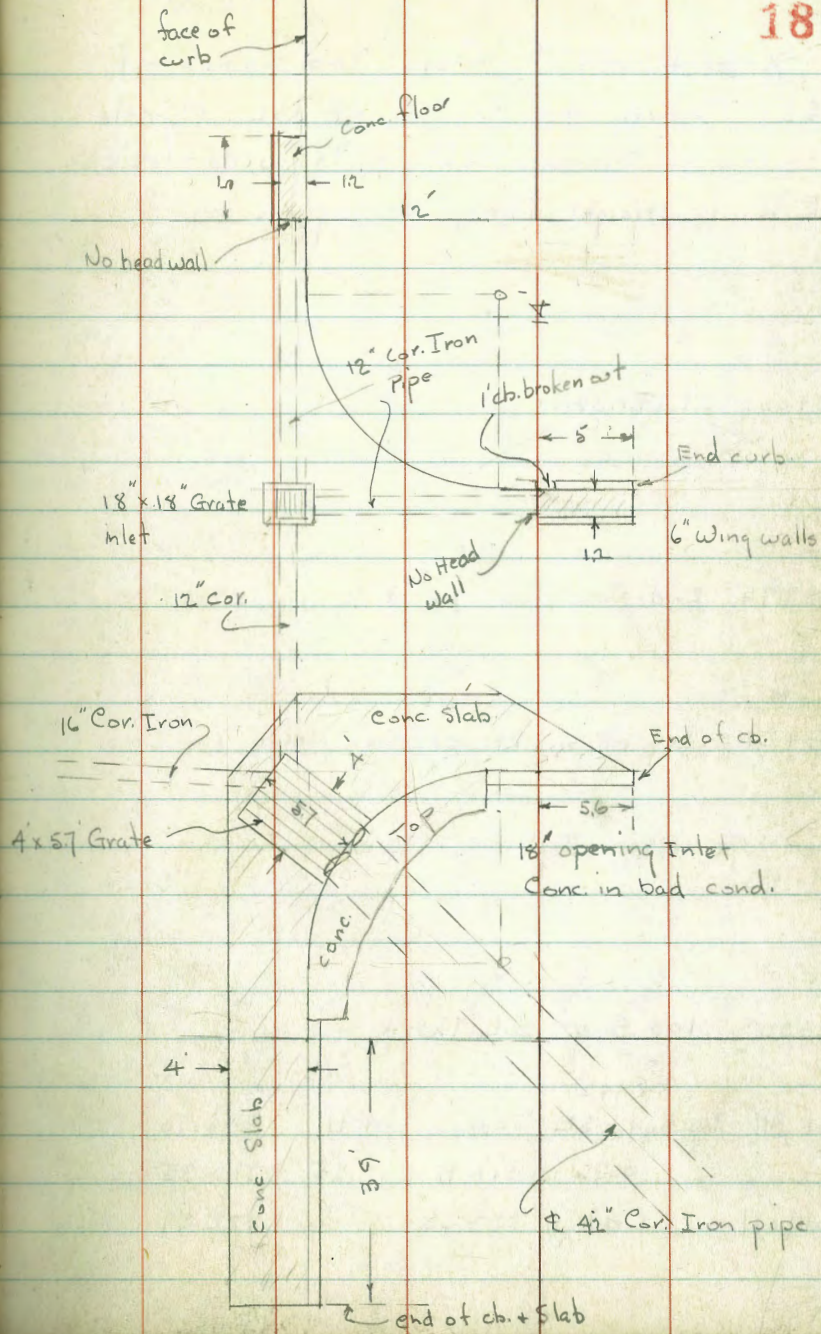 18
face of
curb
Conc floor
5
1.2
12'
No head wall
4
12" Cor. Iron
Pipe
1' cb. broken out
5
End curb
18" x 18" Grate
inlet
1.2
6" Wing walls
No Head
Wall
12" Cor.
Conc. Slab
16" Cor. Iron
End of cb.
4'
5.7
4' x 5.7' Grate
5.6
18" opening Inlet
Conc. in bad cond.
Conc.
4'
Conc Slab
39'
℄ 42" Cor. Iron pipe
end of cb. + Slab